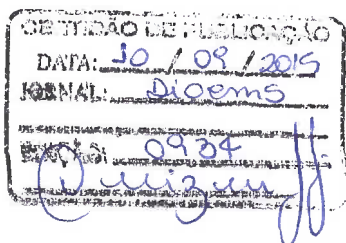 CERTIDÃO DE PUBLICAÇÃO
DATA: 10 / 09 / 2015
JORNAL: Dioems
EDIÇÃO: 0934